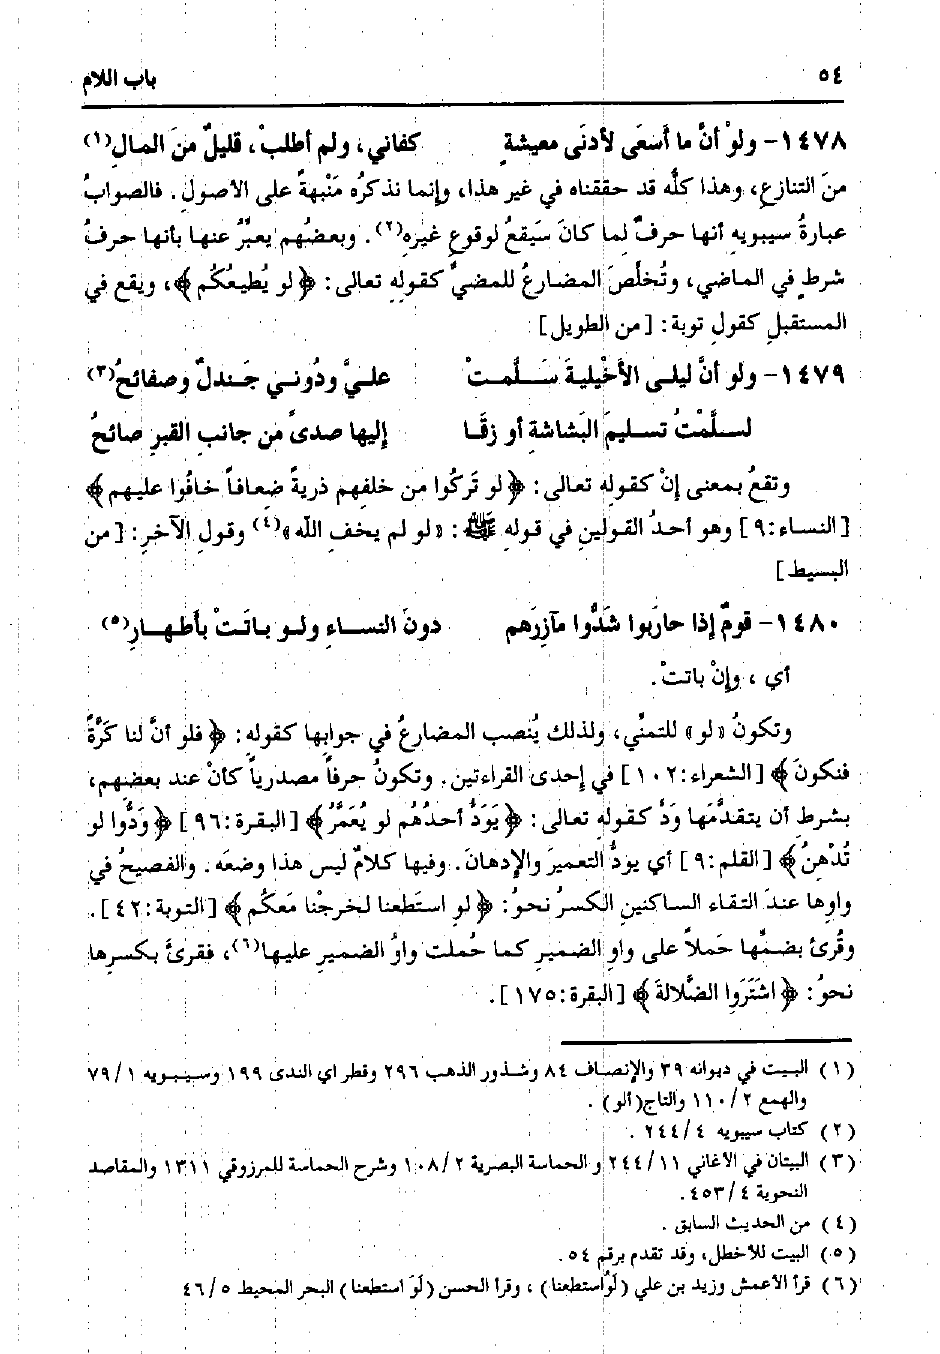 ٥٤ باب اللام
١٤٧٨- ولوْ أنَّ ما أسعَى لأدنَى معيشةٍ كفاني، ولم أطلبْ، قليلٌ منَ المالِ(١)
منَ التنازعِ، وهذا كلُّه قد حققناه في غير هذا، وإنما نذكرُه مَنْبهةً على الأصولِ. فالصوابُ
عبارةُ سيبويه أنها حرفٌ لما كانَ سَيَقعُ لوقوعِ غيرِهِ(٢). وبعضُهم يعبِّرُ عنها بأنها حرفُ
شرطٍ في الماضي، وتُخلِّصَ المضارعُ للمضيِّ كقولِهِ تعالى: ﴿لو يُطيعُكُم﴾، ويقع في
المستقبلِ كقولِ توبة: [من الطويل]
١٤٧٩- ولو أنَّ ليلى الأخْيليةَ سَلَّمتْ عليَّ ودُوني جَندلٌ وصفائحُ(٣)
لسلَّمْتُ تسليمَ البَشاشةِ أو زقَا إليها صدىً من جانبِ القبرِ صائحُ
وتقعُ بمعنى إنْ كقولِه تعالى: ﴿لو تَركُوا من خلفِهم ذريةً ضعافاً خافُوا عليهم﴾
[النساء:٩] وهو أحدُ القولينِ في قولِهِ ﷺ: «لو لم يخفِ الله»(٤) وقولِ الآخرِ: [من
البسيط]
١٤٨٠- قومٌ إذا حارَبوا شَدُّوا مآزِرَهم دونَ النساءِ ولو باتَتْ بأطهارِ(٥)
أي، وإنْ باتتْ.
وتكونُ «لو» للتمنِّي، ولذلك يُنصب المضارعُ في جوابِها كقولِهِ: ﴿فلو أنَّ لنا كَرَّةً
فنكونَ﴾ [الشعراء:١٠٢] في إحدى القراءتين. وتكونُ حرفاً مصدرياً كأنْ عند بعضهم،
بشرطِ أن يتقدَّمَها وَدَّ كقولِهِ تعالى: ﴿يَوَدُّ أحدُهُم لو يُعَمَّرُ﴾ [البقرة:٩٦] ﴿وَدُّوا لو
تُدْهِنُ﴾ [القلم:٩] أي يودُّ التعميرَ والإدهانَ. وفيها كلامٌ ليس هذا وضعَه. والفصيحُ في
واوِها عندَ التقاء الساكنينِ الكسرُ نحوُ: ﴿لو استَطعنا لخرجْنا مَعَكُم﴾ [التوبة:٤٢].
وقُرئَ بضمِّها حَملاً على واوِ الضميرِ كما حُملت واوُ الضميرِ عليها(٦)، فقرئَ بكسرِها
نحوُ: ﴿اشتَرَوِا الضَّلالةَ﴾ [البقرة:١٧٥].
(١) البيت في ديوانه ٣٩ والإنصاف ٨٤ وشذور الذهب ٢٩٦ وقطر اي الندى ١٩٩ وسيبويه ٧٩/١
والهمع ١١٠/٢ والتاج(ألو).
(٢) كتاب سيبويه ٢٤٤/٤.
(٣) البيتان في الأغاني ٢٤٤/١١ و الحماسة البصرية ١٠٨/٢ وشرح الحماسة للمرزوقي ١٣١١ والمقاصد
النحوية ٤٥٣/٤.
(٤) من الحديث السابق.
(٥) البيت للأخطل، وقد تقدم برقم ٥٤.
(٦) قرأ الأعمش وزيد بن علي (لَوُاستطعنا)، وقرأ الحسن (لَوَ استطعنا) البحر المحيط ٤٦/٥